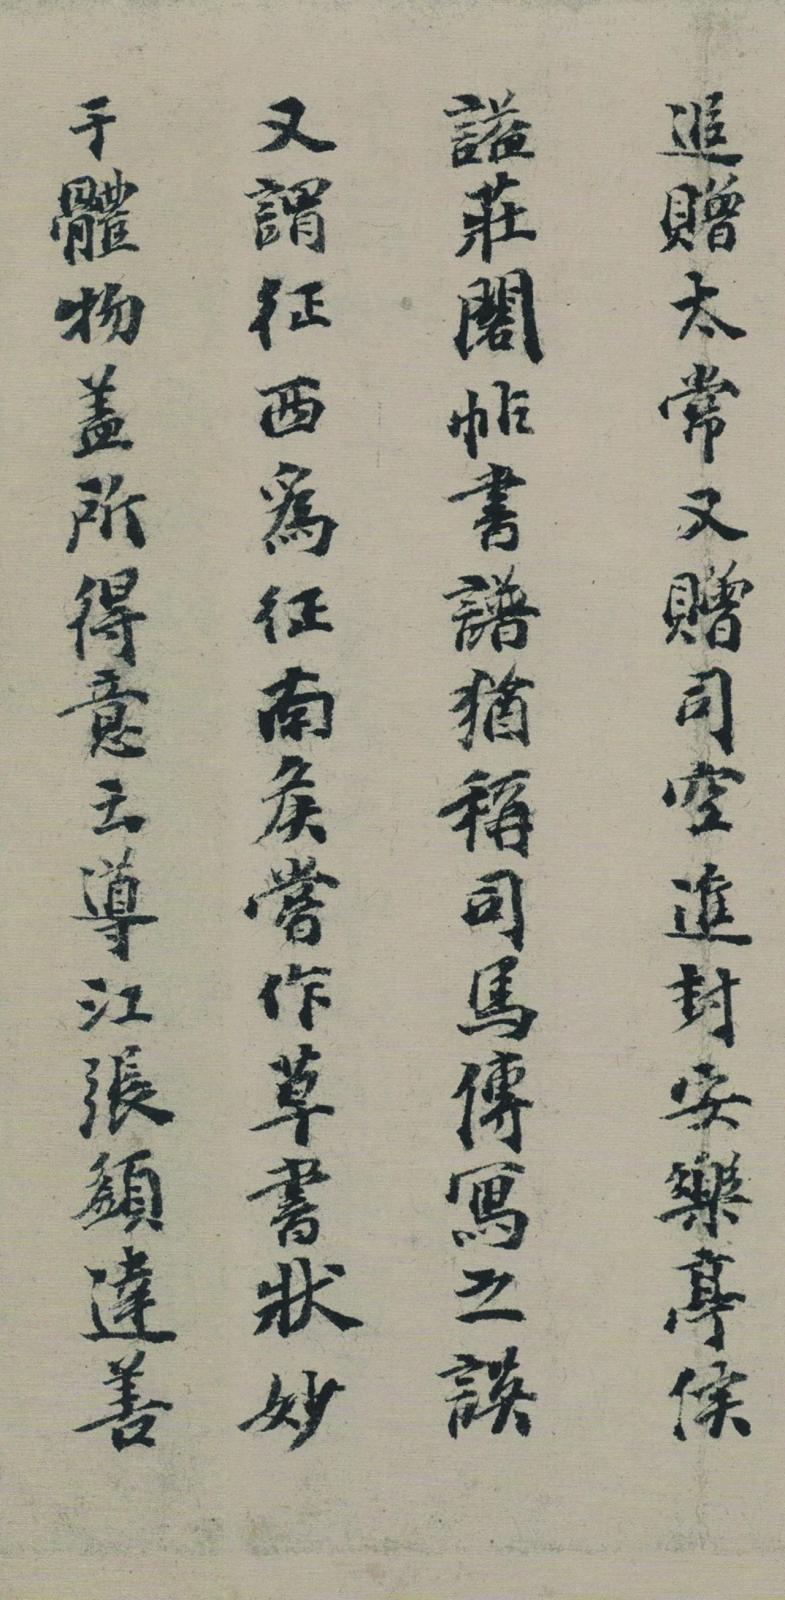 追贈太常又贈司空進封安樂亭侯
謚莊閣帖書譜猶稱司馬傳寫之誤
又謂征西為征南矦嘗作草書狀妙
于體物盖所得意云導江張䪴達善